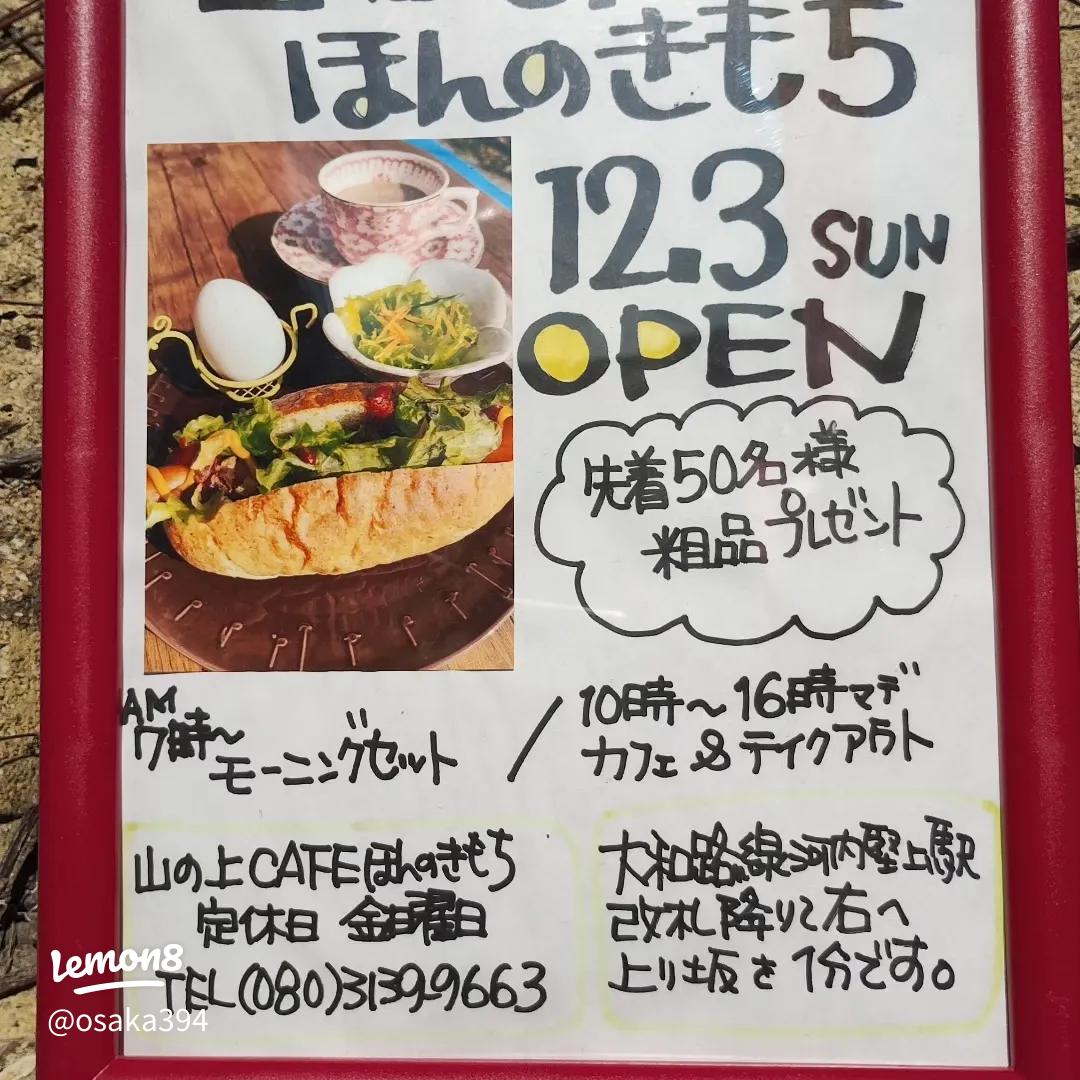 ほんのきもち
12.3 SUN
OPEN
先着50名様
粗品プレゼント
AM
7時〜
モーニングセット
/
10時〜16時マデ
カフェ&テイクアウト
山の上CAFEほんのきもち
定休日 金曜日
TEL(080)3139-9663
大和路線河内堅上駅
改札降りて右へ
上り坂を1分です。
Lemon8
@osaka394